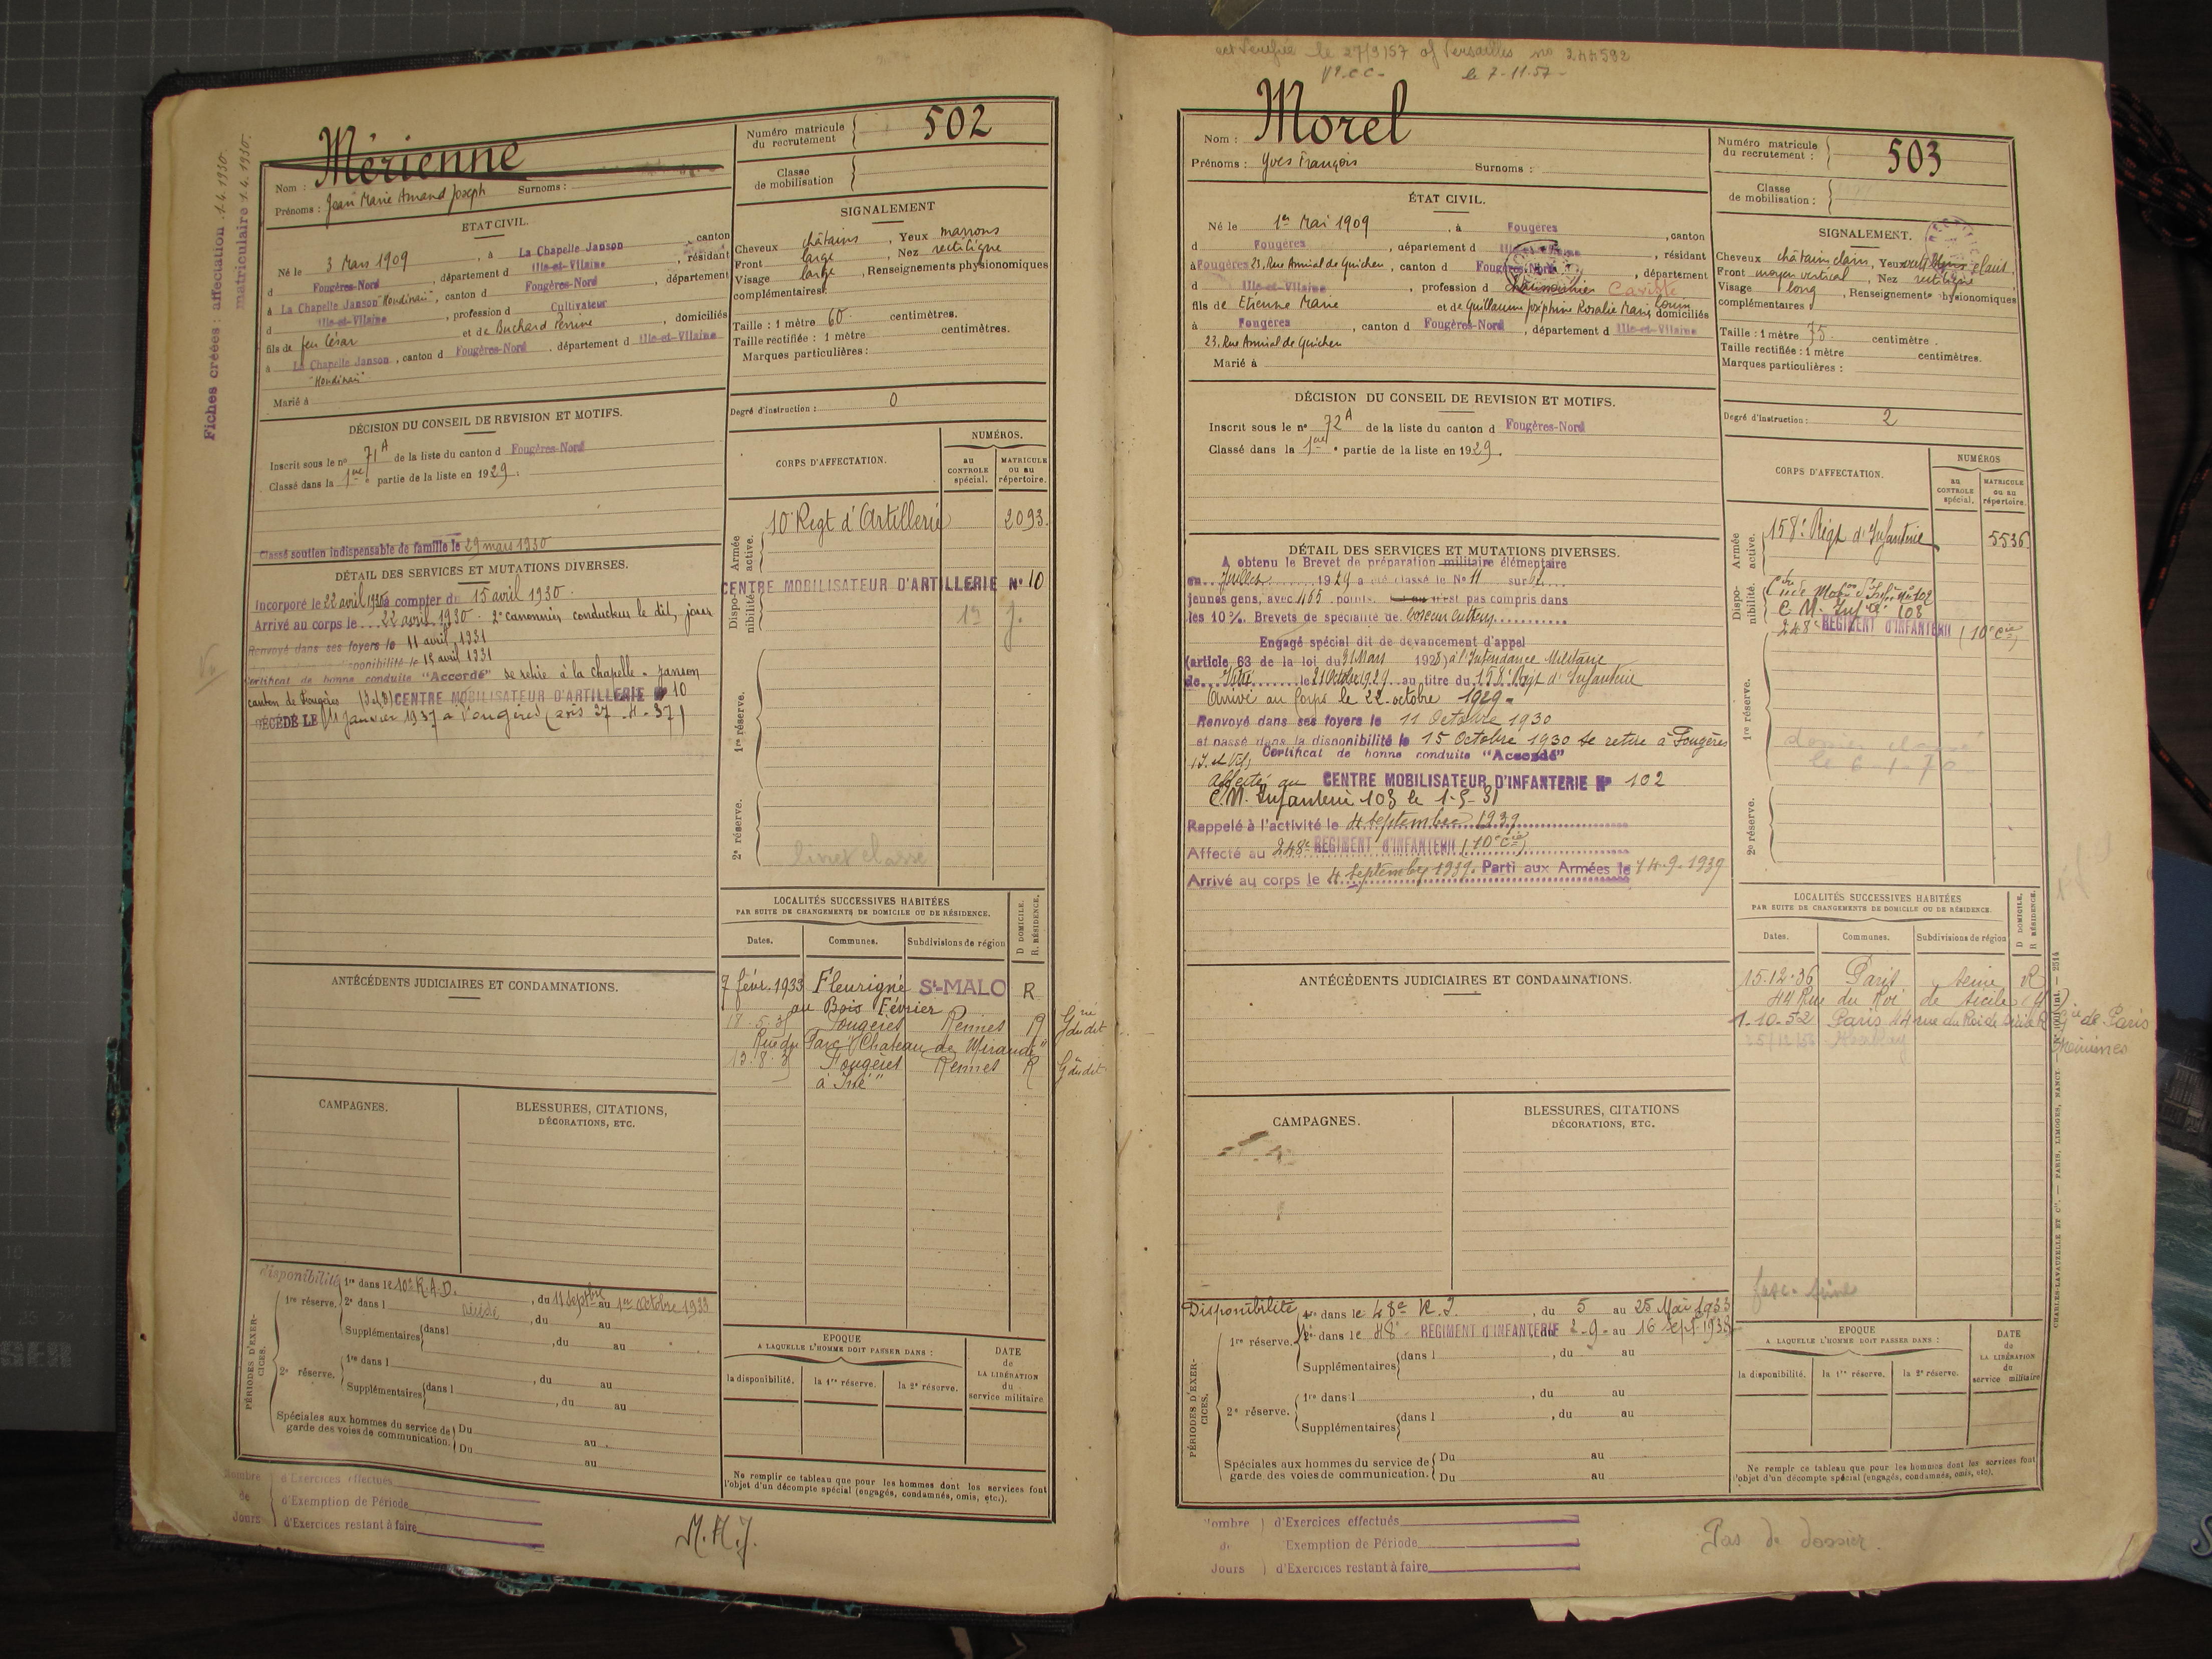 Fiches créées : affectation 1.4.1930.
matriculaire 1.4.1930.
Mérienne
Nom :
Prénoms : Jean Marie Amand Joseph Surnoms :
Numéro matricule du recrutement 502
Classe de mobilisation
ETAT CIVIL.
Né le 3 Mars 1909, à La Chapelle Janson, canton
d Fougères-Nord, département d Ille-et-Vilaine, résidant
à La Chapelle Janson, canton d Fougères-Nord, département
d Ille-et-Vilaine, profession d Cultivateur
fils de feu César et de Buchard Perrine, domiciliés
à La Chapelle Janson, canton d Fougères-Nord, département d Ille-et-Vilaine
Marié à
SIGNALEMENT
Cheveux châtains, Yeux marrons
Front large, Nez rectiligne
Visage large, Renseignements physionomiques
complémentaires :
Taille : 1 mètre 60 centimètres.
Taille rectifiée : 1 mètre centimètres.
Marques particulières :
Degré d'instruction : 0
DÉCISION DU CONSEIL DE REVISION ET MOTIFS.
Inscrit sous le n° 71 A de la liste du canton d Fougères-Nord
Classé dans la 1ère partie de la liste en 1929.
Classé soutien indispensable de famille le 29 mars 1930
DÉTAIL DES SERVICES ET MUTATIONS DIVERSES.
Incorporé le 22 avril 1930 à compter du 15 avril 1930.
Arrivé au corps le 22 avril 1930. 2e canonnier conducteur le dit jour
Renvoyé dans ses foyers le 11 avril 1931
disponibilité le 15 avril 1931
Certificat de bonne conduite "Accordé" se retire à la Chapelle-Janson
canton de Fougères (I et V) CENTRE MOBILISATEUR D'ARTILLERIE N° 10
DÉCÉDÉ LE 11 janvier 1937 à Fougères (avis 27-4-37)
CORPS D'AFFECTATION.
NUMÉROS.
au CONTROLE spécial.
MATRICULE ou au répertoire.
Armée active.
10e Regt d'Artillerie 2093.
Disponibilité.
CENTRE MOBILISATEUR D'ARTILLERIE N° 10
1re réserve.
2e réserve.
livret classé
LOCALITÉS SUCCESSIVES HABITÉES
PAR SUITE DE CHANGEMENTS DE DOMICILE OU DE RÉSIDENCE.
Dates. Communes. Subdivisions de région
D DOMICILE. R. RÉSIDENCE.
7 févr. 1933 Fleurigné St-MALO R
au Bois Février
18.5.35 Fougères Rennes R
Rue du Parc (Chateau de Mirande)
13.8.35 Fougères Rennes R
ANTÉCÉDENTS JUDICIAIRES ET CONDAMNATIONS.
CAMPAGNES.
BLESSURES, CITATIONS,
DÉCORATIONS, ETC.
PÉRIODES D'EXERCICES.
disponibilité 1re dans le 10e R.A.D., du 11 Septbre au 1er Octobre 1933
1re réserve. 2e dans l décédé, du au
Supplémentaires dans l, du au
2e réserve. 1re dans l, du au
Supplémentaires dans l, du au
Spéciales aux hommes du service de garde des voies de communication. Du au
Du au
EPOQUE
A LAQUELLE L'HOMME DOIT PASSER DANS :
la disponibilité. la 1re réserve. la 2e réserve.
DATE de LA LIBÉRATION du service militaire
Ne remplir ce tableau que pour les hommes dont les services font
l'objet d'un décompte spécial (engagés, condamnés, omis, etc.).
Nombre d'Exercices effectués
de d'Exemption de Période
Jours d'Exercices restant à faire
M.H.J.
le 27/9/57 Versailles no 244592
le 7-11-57
Morel
Nom :
Prénoms : Yves François Surnoms :
Numéro matricule du recrutement : 503
Classe de mobilisation :
ÉTAT CIVIL.
Né le 1er Mai 1909, à Fougères, canton
d Fougères, département d Ille-et-Vilaine, résidant
à Fougères 23, Rue Amiral de Guichen, canton d Fougères-Nord, département
d Ille-et-Vilaine, profession d Caviste
fils de Etienne Marie et de Guillaume Joséphine Rosalie Marie Louise domiciliés
à Fougères, canton d Fougères-Nord, département d Ille-et-Vilaine
23, Rue Amiral de Guichen
Marié à
SIGNALEMENT.
Cheveux châtain clair, Yeux clair
Front moyen vertical, Nez rectiligne
Visage long, Renseignements physionomiques
complémentaires
Taille : 1 mètre 75 centimètre.
Taille rectifiée : 1 mètre centimètres.
Marques particulières :
Degré d'instruction : 2
DÉCISION DU CONSEIL DE REVISION ET MOTIFS.
Inscrit sous le n° 72 A de la liste du canton d Fougères-Nord
Classé dans la 1ère partie de la liste en 1929.
DÉTAIL DES SERVICES ET MUTATIONS DIVERSES.
A obtenu le Brevet de préparation militaire élémentaire
en Juillet 1929 a été classé le N° 11 sur
jeunes gens, avec 465 points. n'est pas compris dans
les 10 %. Brevets de spécialité de
Engagé spécial dit de devancement d'appel
(article 63 de la loi du 31 Mars 1928) à l'Intendance Militaire
de Vitré le 21 Octobre 1929 au titre du 158e Regt d'Infanterie
Arrivé au Corps le 22 octobre 1929.
Renvoyé dans ses foyers le 11 Octobre 1930
et passé dans la disponibilité le 15 Octobre 1930 Se retire à Fougères
(I. et V.) Certificat de bonne conduite "Accordé"
Affecté au CENTRE MOBILISATEUR D'INFANTERIE N° 102
C.M. Infanterie 103 le 1-5-31
Rappelé à l'activité le 4 septembre 1939
Affecté au 248e REGIMENT D'INFANTERIE (10e Cie)
Arrivé au corps le 4 septembre 1939. Parti aux Armées le 14-9-1939
CORPS D'AFFECTATION.
NUMÉROS
au CONTROLE spécial.
MATRICULE ou au répertoire.
Armée active.
158e Régt d'Infanterie 5536
Disponibilité.
Ctre de Mobon d'Infie n° 102
C.M. Infie 103
248e REGIMENT D'INFANTERIE (10e Cie)
1re réserve.
le 6-1-70
2e réserve.
LOCALITÉS SUCCESSIVES HABITÉES
PAR SUITE DE CHANGEMENTS DE DOMICILE OU DE RÉSIDENCE.
Dates. Communes. Subdivisions de région
D DOMICILE. R RÉSIDENCE.
15.12.36 Paris Seine R
44 Rue du Roi de Sicile (4e)
1.10.52 Paris 44 rue du Roi de Sicile R
ANTÉCÉDENTS JUDICIAIRES ET CONDAMNATIONS.
CAMPAGNES.
BLESSURES, CITATIONS
DÉCORATIONS, ETC.
PÉRIODES D'EXERCICES.
Disponibilité 1re dans le 48e R.I., du 5 au 25 Mai 1933
1re réserve. 2e dans le 48e REGIMENT D'INFANTERIE du 2-9- au 16 Sept 1938
Supplémentaires dans l, du au
2e réserve. 1re dans l, du au
Supplémentaires dans l, du au
Spéciales aux hommes du service de garde des voies de communication. Du au
Du au
EPOQUE
A LAQUELLE L'HOMME DOIT PASSER DANS :
la disponibilité. la 1re réserve. la 2e réserve.
DATE de LA LIBÉRATION du service militaire
Ne remplir ce tableau que pour les hommes dont les services font
l'objet d'un décompte spécial (engagés, condamnés, omis, etc).
Nombre d'Exercices effectués
de Exemption de Période
Jours d'Exercices restant à faire
Pas de dossier.
CHARLES-LAVAUZELLE ET Cie. — PARIS, LIMOGES, NANCY.